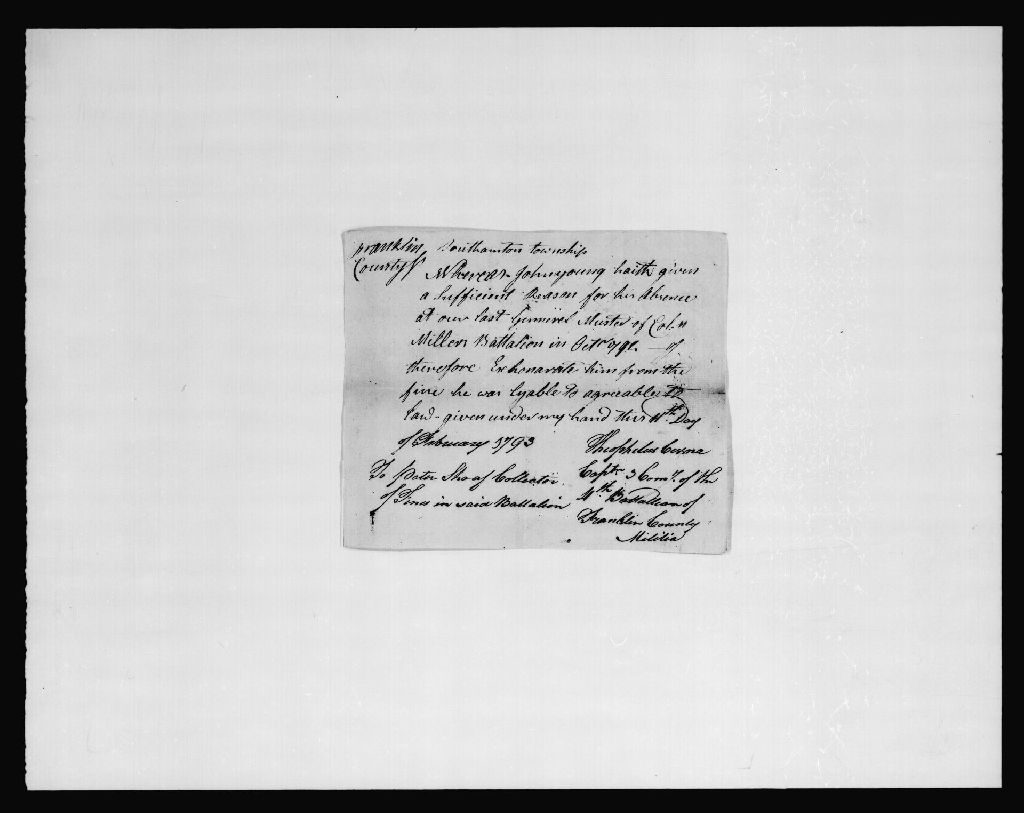 Franklin Southamton township
County
Whereas John young haith given
a Sufficient Reason for his Absence
at our last Genneral Muster of Col.n
Millers Battalion in Octr 792
therefore Exhonarate him from the
fine he was lyable to agreeable to
Law - given under my hand this Day
of February 1793
Theophelus
To Peter Collector
of Fines in said Battalion
Capt. 3 Comy. of the
4th Battallion of
Franklin County
Militia